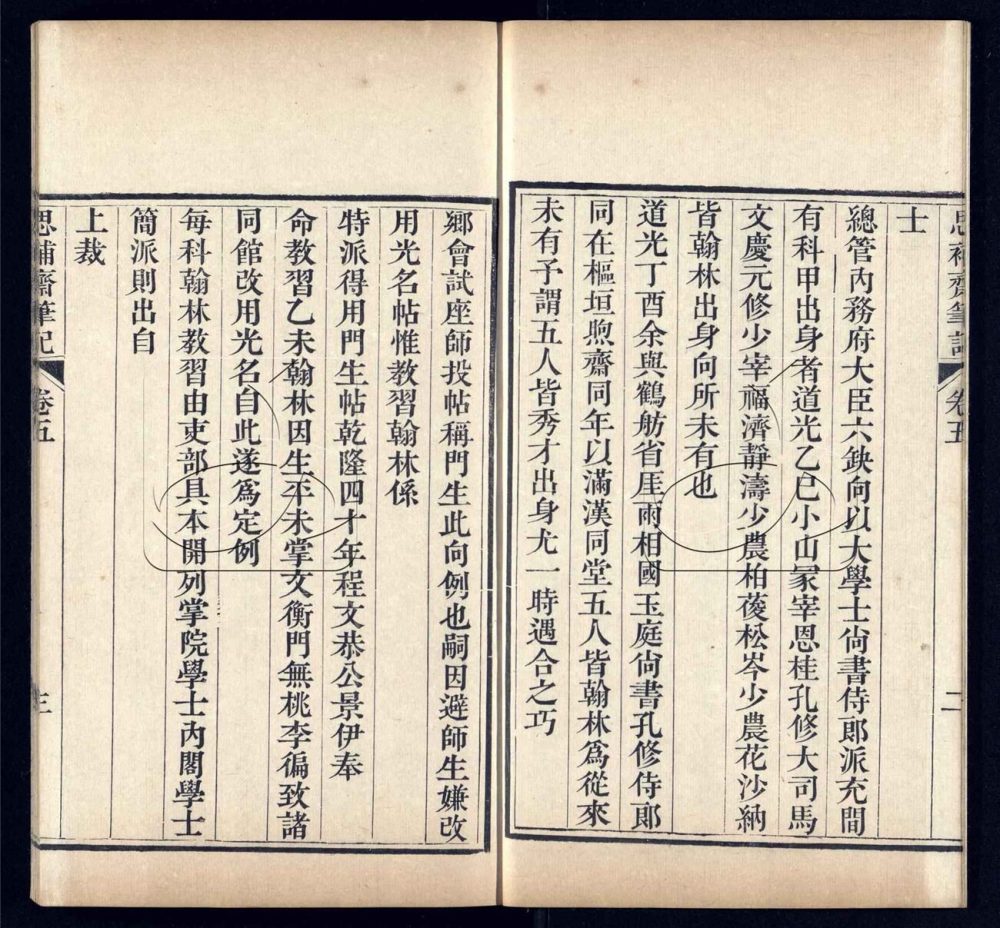 思補齋筆記 卷五 二
士
總管內務府大臣六缺向以大學士尙書侍郎派充間
有科甲出身者道光乙巳小山冢宰恩桂孔修大司馬
文慶元修少宰福濟靜濤少農柏葰松岑少農花沙納
皆翰林出身向所未有也
道光丁酉余與鶴舫省厓兩相國玉庭尙書孔修侍郎
同在樞垣煦齋同年以滿漢同堂五人皆翰林爲從來
未有予謂五人皆秀才出身尤一時遇合之巧
鄉會試座師投帖稱門生此向例也嗣因避師生嫌改
用光名帖惟教習翰林係
特派得用門生帖乾隆四十年程文恭公景伊奉
命教習乙未翰林因生平未掌文衡門無桃李徧致諸
同館改用光名自此遂爲定例
每科翰林教習由吏部具本開列掌院學士內閣學士
簡派則出自
上裁
思補齋筆記 卷五 三